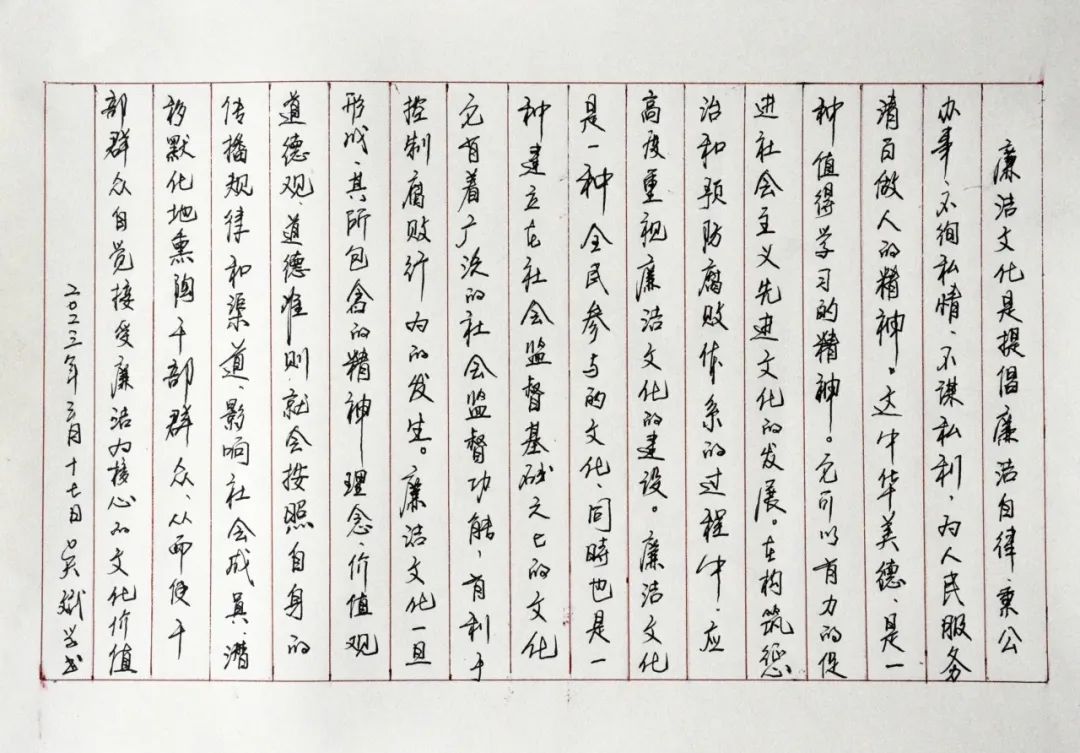 廉洁文化是提倡廉洁自律秉公
办事、不徇私情、不谋私利、为人民服务
清白做人的精神。这中华美德、是一
种值得学习的精神。它可以有力的促
进社会主义先进文化的发展。在构筑惩
治和预防腐败体系的过程中、应
高度重视廉洁文化的建设。廉洁文化
是一种全民参与的文化、同時也是一
种建立在社会监督基础之上的文化
它有着广泛的社会监督功能、有利于
控制腐败行为的发生。廉洁文化一旦
形成、其所包含的精神理念、价值观
道德观、道德准则、就会按照自身的
传播规律和渠道、影响社会成員、潜
移默化地熏陶干部群众、从而使干
部群众自觉接受廉洁为核心的文化价值
二〇二三年三月十七日吴斌学书